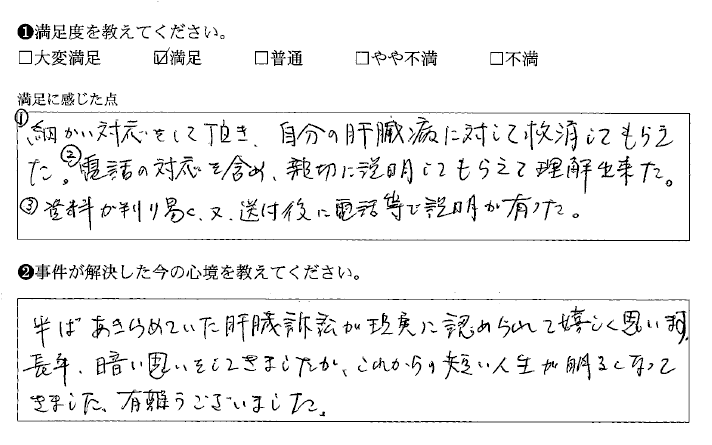 ❶満足度を教えてください。
□大変満足 ☑満足 □普通 □やや不満 □不満
満足に感じた点
①細かい対応をして頂き、自分の肝臓病に対して救済してもらえ
た。②電話の対応を含め、親切に説明してもらえて理解出来た。
③資料が判り易く、又、送付後に電話等で説明が有った。
❷事件が解決した今の心境を教えてください。
半ばあきらめていた肝臓訴訟が現実に認められて嬉しく思います。
長年、暗い思いをしてきましたが、これからの短い人生が明るくなって
きました、有難うございました。